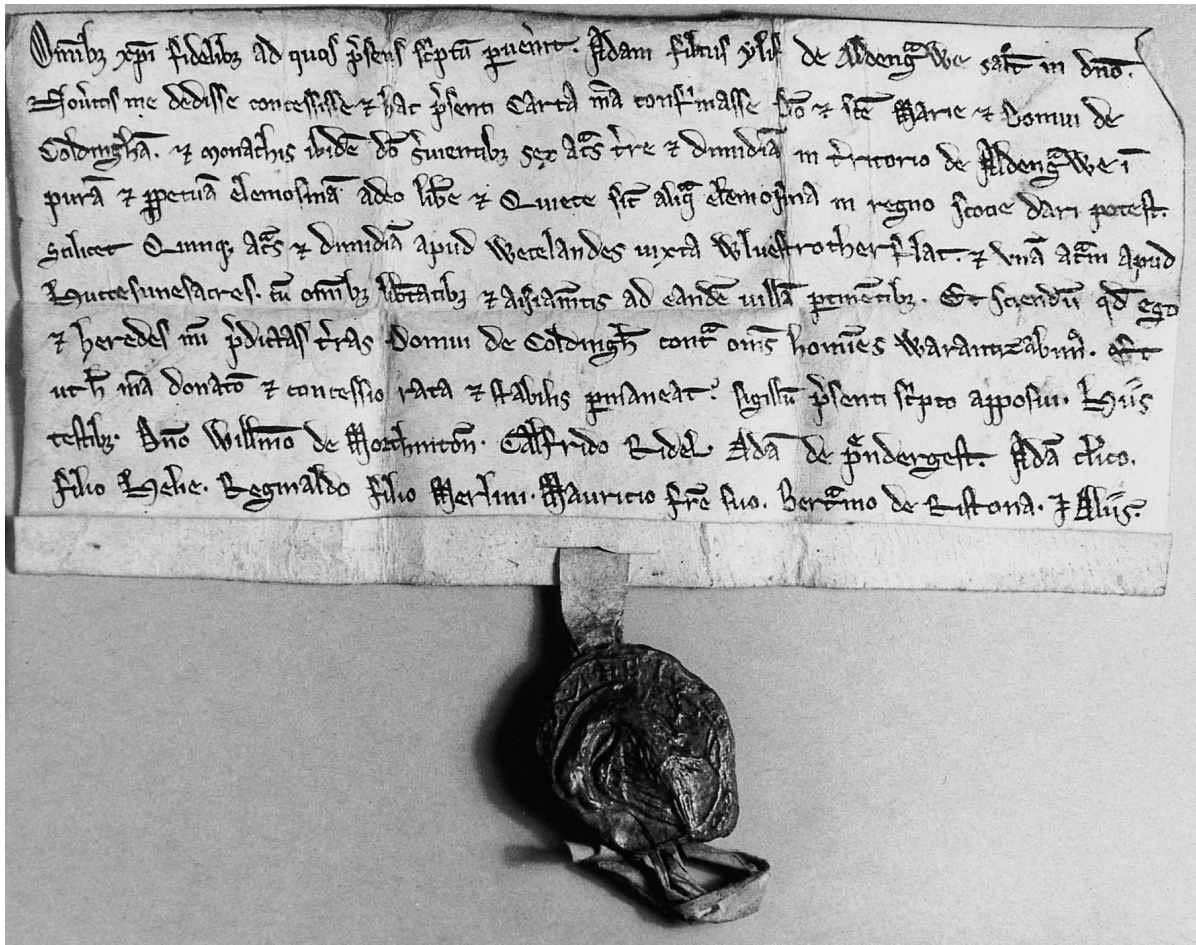 Om̅ib; xp̅i fidelib; ad quos p̅sens sc̅ptu̅ p̅uen̅it. Adam filius ylif de Aldeng̅we sal̅t in dn̅o.
Nov̅itis me dedisse concessisse ⁊ hac p̅senti Carta m̅a confi̅masse D̅o ⁊ sc̅e Marie ⁊ Domui de
Coldingh̅a̅. ⁊ monachis ibide̅ d̅o s̅uientib; sex ac̅s t̅re ⁊ dimidia̅ in t̅ritorio de Aldeng̅we i̅
pura̅ ⁊ p̅petua̅ elemosina̅ adeo lib̅e ⁊ Quiete sic̅ aliq̅ elemosina in regno scocie dari potest.
Scilicet Quinq; ac̅s ⁊ dimidia̅ apud Wetelandes iuxta Wluestrother flat. ⁊ vna̅ ac̅m apud
Huttesunesacres. cu̅ om̅ib; lib̅tatib; ⁊ aisiam̅tis ad eande̅ uilla̅ p̅tine̅tib;. Et sciendu̅ qd̅ ego
⁊ heredes mi̅ p̅dictas t̅ras Domui de Coldingh̅ cont̅ om̅s homi̅es Warantizabim̅. Et
ut h̅ m̅a donatō ⁊ concessio rata ⁊ stabilis p̅maneat. sigillu̅ p̅senti sc̅pto apposui. Hiis
testib;. Dn̅o Will̅mo de Morthinton̅. Galfrido Ridel. Ada̅ de p̅ndergest. Ada̅ cl̅ico.
filio Helie. Reginaldo filio Merlini. Mauricio fr̅e suo. Bert̅mo de Ristona. ⁊ Aliis.